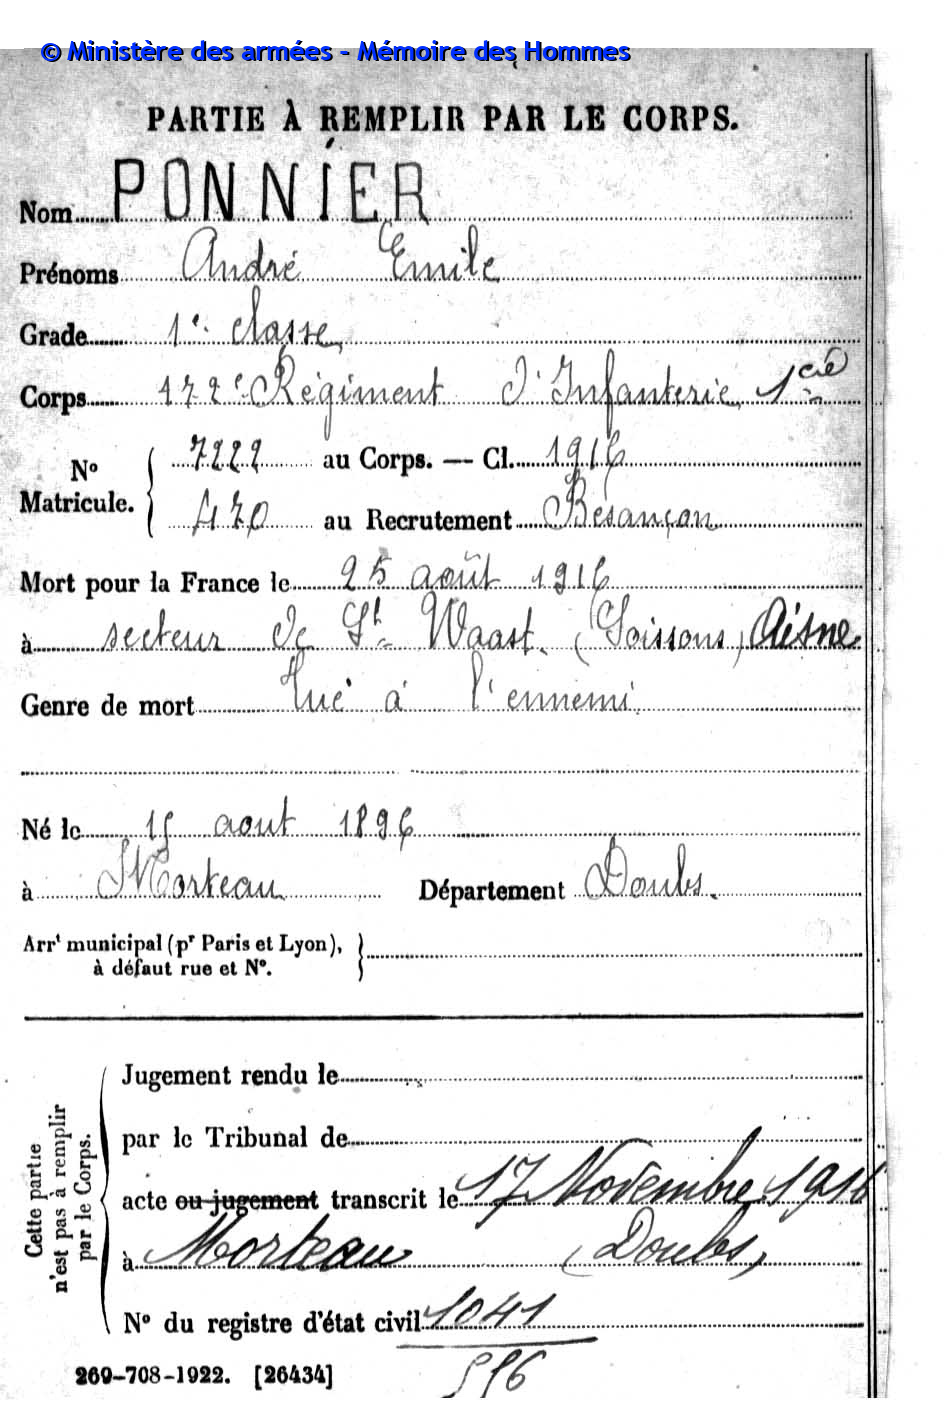 © Ministère des armées - Mémoire des Hommes
PARTIE À REMPLIR PAR LE CORPS.
Nom PONNIER
Prénoms André Emile
Grade 1e classe
Corps 172e Régiment d'Infanterie 1re Cie
No Matricule. 7222 au Corps. — Cl. 1916
470 au Recrutement Besançon
Mort pour la France le 25 août 1916
à secteur de St Waast. (Soissons) Aisne
Genre de mort Tué à l'ennemi
Né le 15 aout 1896
à Morteau Département Doubs.
Arrt municipal (pr Paris et Lyon),
à défaut rue et No.
Cette partie n'est pas à remplir par le Corps.
Jugement rendu le
par le Tribunal de
acte ou jugement transcrit le 17 Novembre 1916
à Morteau (Doubs)
No du registre d'état civil 1041
269-708-1922. [26434]